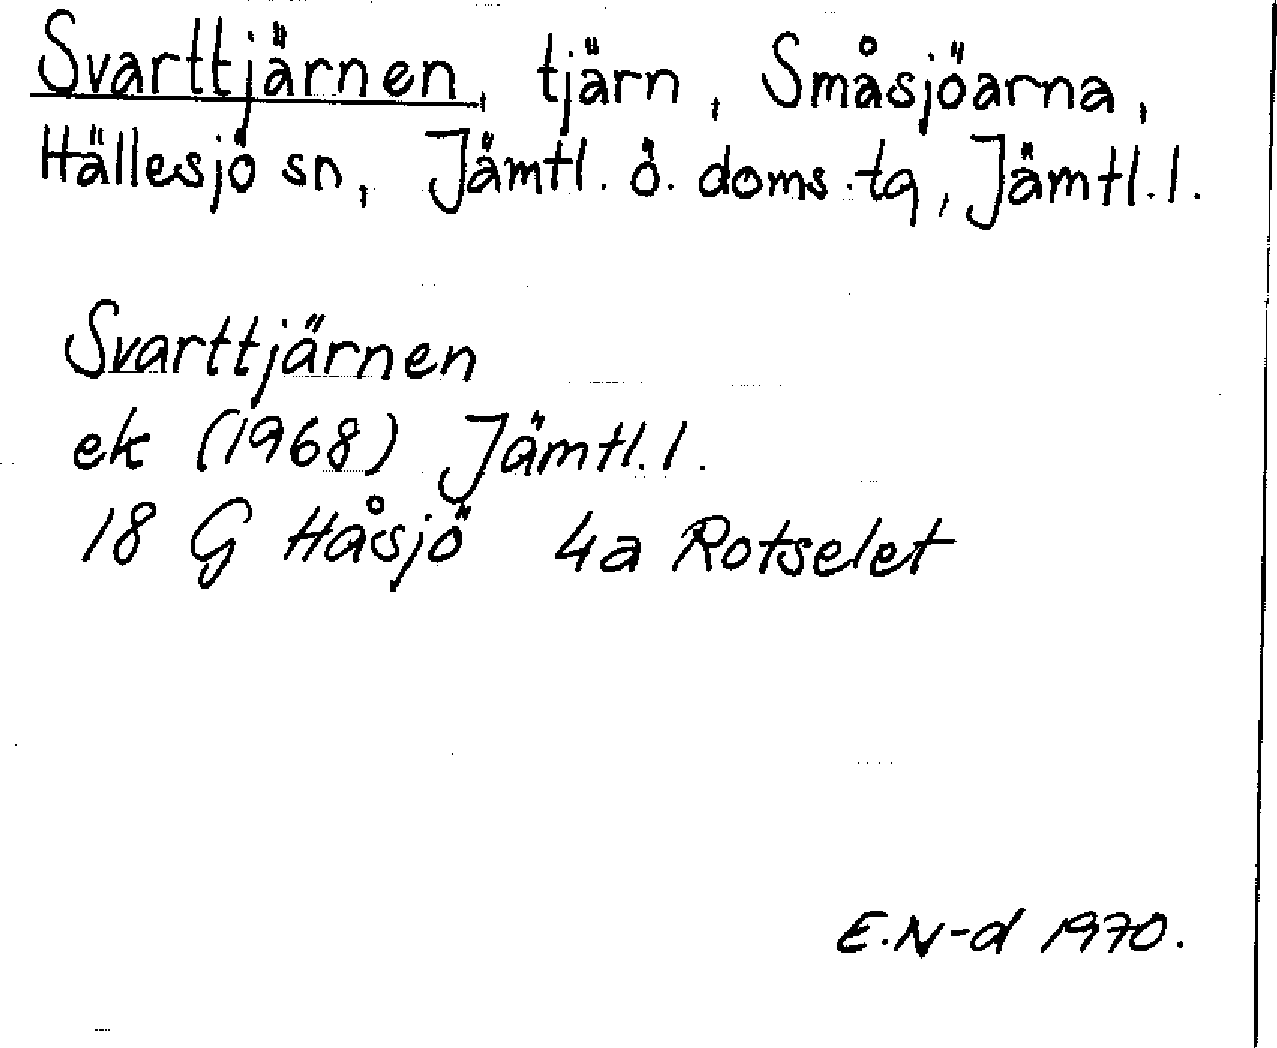 Svarttjärnen, tjärn, Småsjöarna,
Hällesjö sn, Jämtl. ö. doms.tg, Jämtl.l.
Svarttjärnen
ek (1968) Jämtl.l.
18 G Håsjö 4a Rotselet
E.N-d 1970.